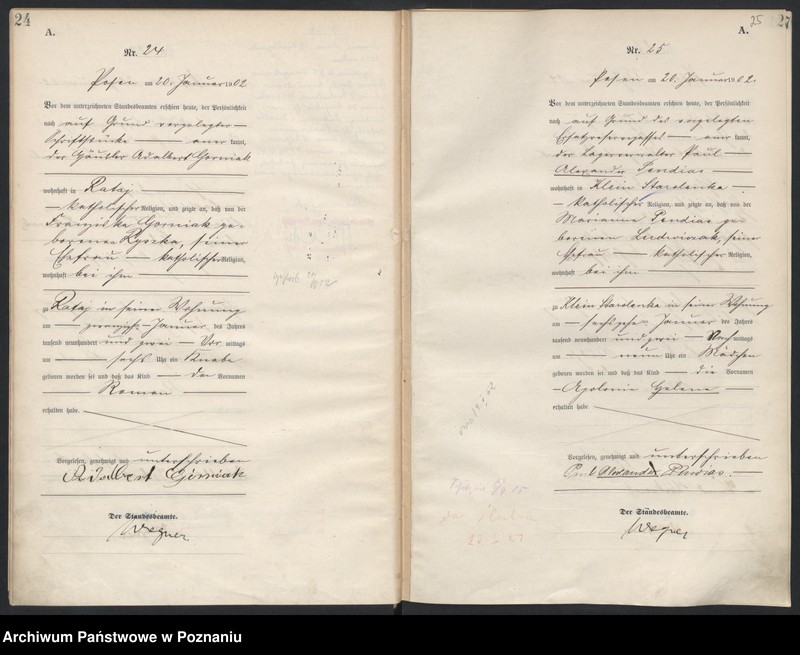 24
A.
Nr. 24
Posen am 20. Januar 1902
Vor dem unterzeichneten Standesbeamten erschien heute, der Persönlichkeit
nach auf Grund vorgelegter
Schriftstücke kannt,
der Häusler Adalbert Gorniak
wohnhaft in Rataj
katholischer Religion, und zeigte an, daß von der
Franziska Gorniak ge-
borenen, seiner
Ehefrau katholischer Religion,
wohnhaft bei ihm
zu Rataj in seiner Wohnung
am zwanzigsten Januar des Jahres
tausend neunhundert und zwei Vor mittags
um sechs Uhr ein Knabe
geboren worden sei und daß das Kind den Vornamen
Roman
erhalten habe.
Vorgelesen, genehmigt und unterschrieben
Adalbert Górniak
Der Standesbeamte.
Wegner
25
A.
Nr. 25
Posen am 20. Januar 1902.
Vor dem unterzeichneten Standesbeamten erschien heute, der Persönlichkeit
nach auf Grund des vorgelegten
kannt,
der Lagerverwalter Paul
Alexander Pendias
wohnhaft in Klein Starolenka
katholischer Religion, und zeigte an, daß von der
Marianna Pendias ge-
borenen Ludwiczak, seiner
Ehefrau katholischer Religion,
wohnhaft bei ihm
zu Klein Starolenka in seiner Wohnung
am sechszehnten Januar des Jahres
tausend neunhundert und zwei Nach mittags
um neun Uhr ein Mädchen
geboren worden sei und daß das Kind die Vornamen
Apolonia Helena
erhalten habe.
Vorgelesen, genehmigt und unterschrieben
Paul Alexander Pendias.
Der Standesbeamte.
Wegner
Archiwum Państwowe w Poznaniu